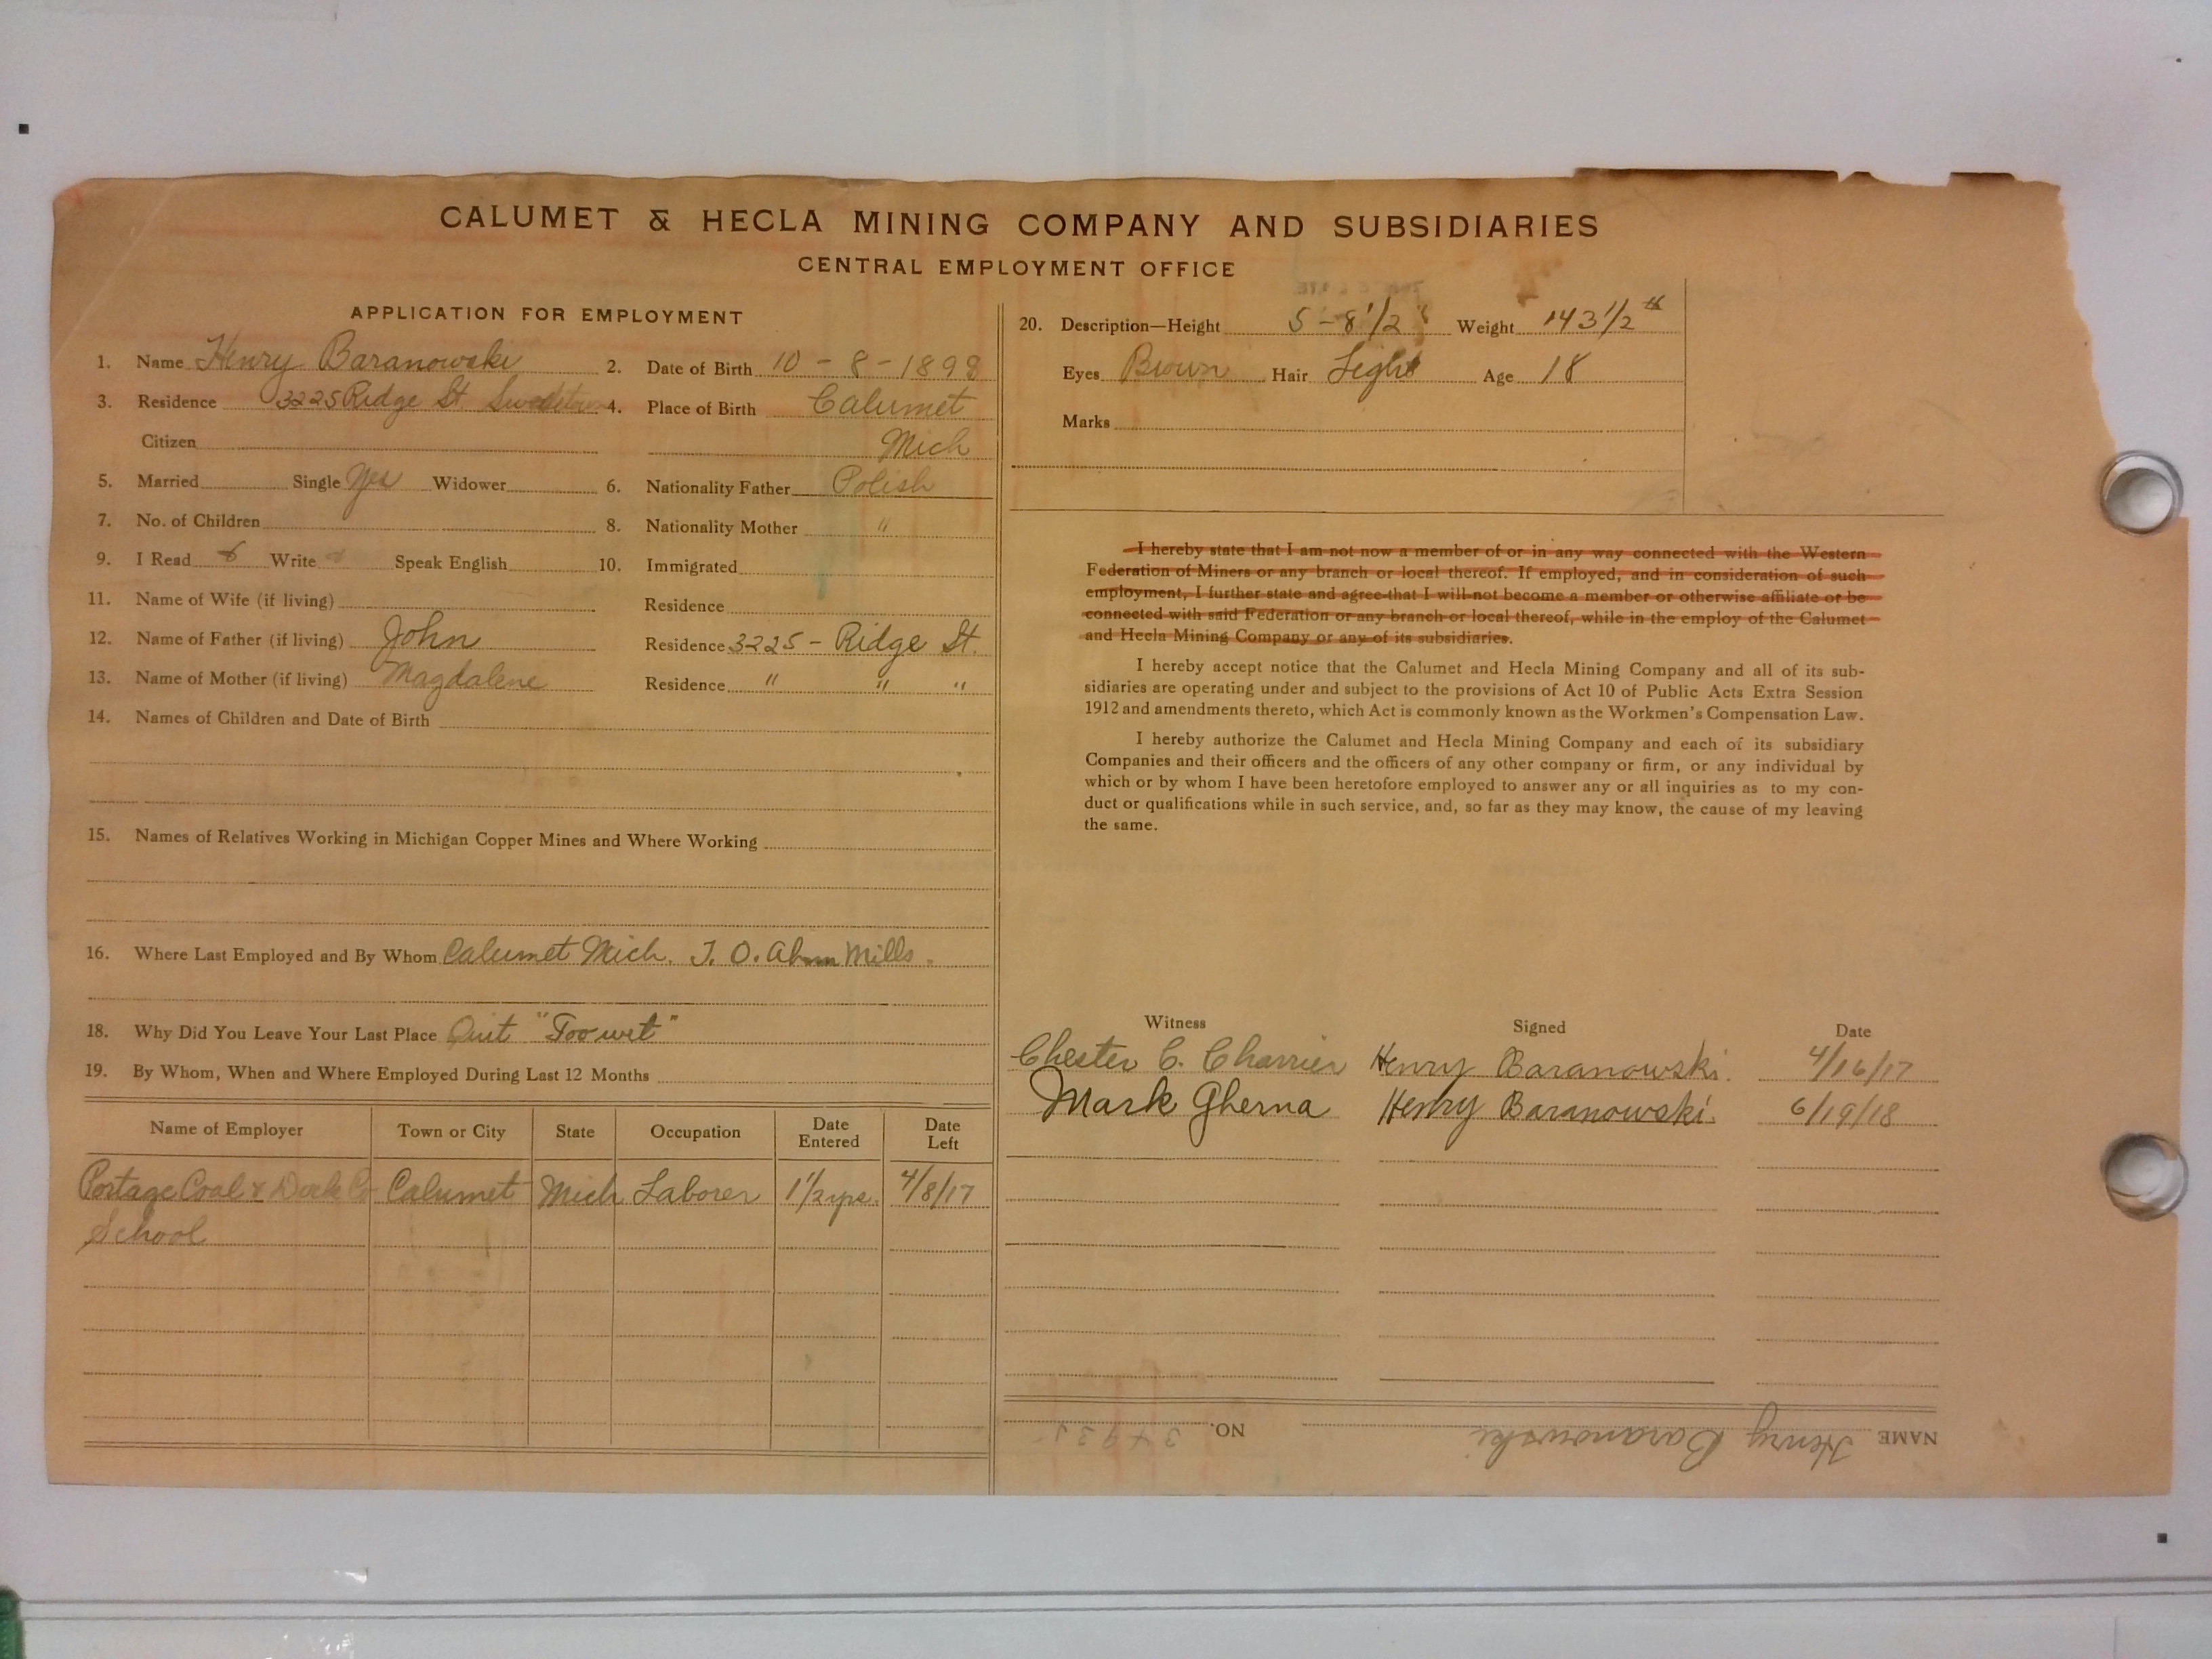 CALUMET & HECLA MINING COMPANY AND SUBSIDIARIES
CENTRAL EMPLOYMENT OFFICE
APPLICATION FOR EMPLOYMENT
1. Name Henry Baranowski 2. Date of Birth 10 - 8 - 1898
3. Residence 3225 Ridge St Swedetown 4. Place of Birth Calumet
Citizen Mich
5. Married Single Yes Widower 6. Nationality Father Polish
7. No. of Children 8. Nationality Mother "
9. I Read Write Speak English 10. Immigrated
11. Name of Wife (if living) Residence
12. Name of Father (if living) John Residence 3225 - Ridge St.
13. Name of Mother (if living) Magdalene Residence " " "
14. Names of Children and Date of Birth
15. Names of Relatives Working in Michigan Copper Mines and Where Working
16. Where Last Employed and By Whom Calumet Mich. Mills.
18. Why Did You Leave Your Last Place Quit "Too wet"
19. By Whom, When and Where Employed During Last 12 Months
Name of Employer Town or City State Occupation Date Entered Date Left
Portage Coal & Dock Co Calumet Mich Laborer 1 1/2 yrs. 4/8/17
School
20. Description—Height 5 - 8 1/2 " Weight 143 1/2 #
Eyes Brown Hair Light Age 18
Marks
I hereby state that I am not now a member of or in any way connected with the Western
Federation of Miners or any branch or local thereof. If employed, and in consideration of such
employment, I further state and agree that I will not become a member or otherwise affiliate or be
connected with said Federation or any branch or local thereof, while in the employ of the Calumet
and Hecla Mining Company or any of its subsidiaries.
I hereby accept notice that the Calumet and Hecla Mining Company and all of its sub-
sidiaries are operating under and subject to the provisions of Act 10 of Public Acts Extra Session
1912 and amendments thereto, which Act is commonly known as the Workmen's Compensation Law.
I hereby authorize the Calumet and Hecla Mining Company and each of its subsidiary
Companies and their officers and the officers of any other company or firm, or any individual by
which or by whom I have been heretofore employed to answer any or all inquiries as to my con-
duct or qualifications while in such service, and, so far as they may know, the cause of my leaving
the same.
Witness Signed Date
Chester C. Charrier Henry Baranowski. 4/16/17
Mark Gherna Henry Baranowski. 6/19/18
NAME Henry Baranowski NO.